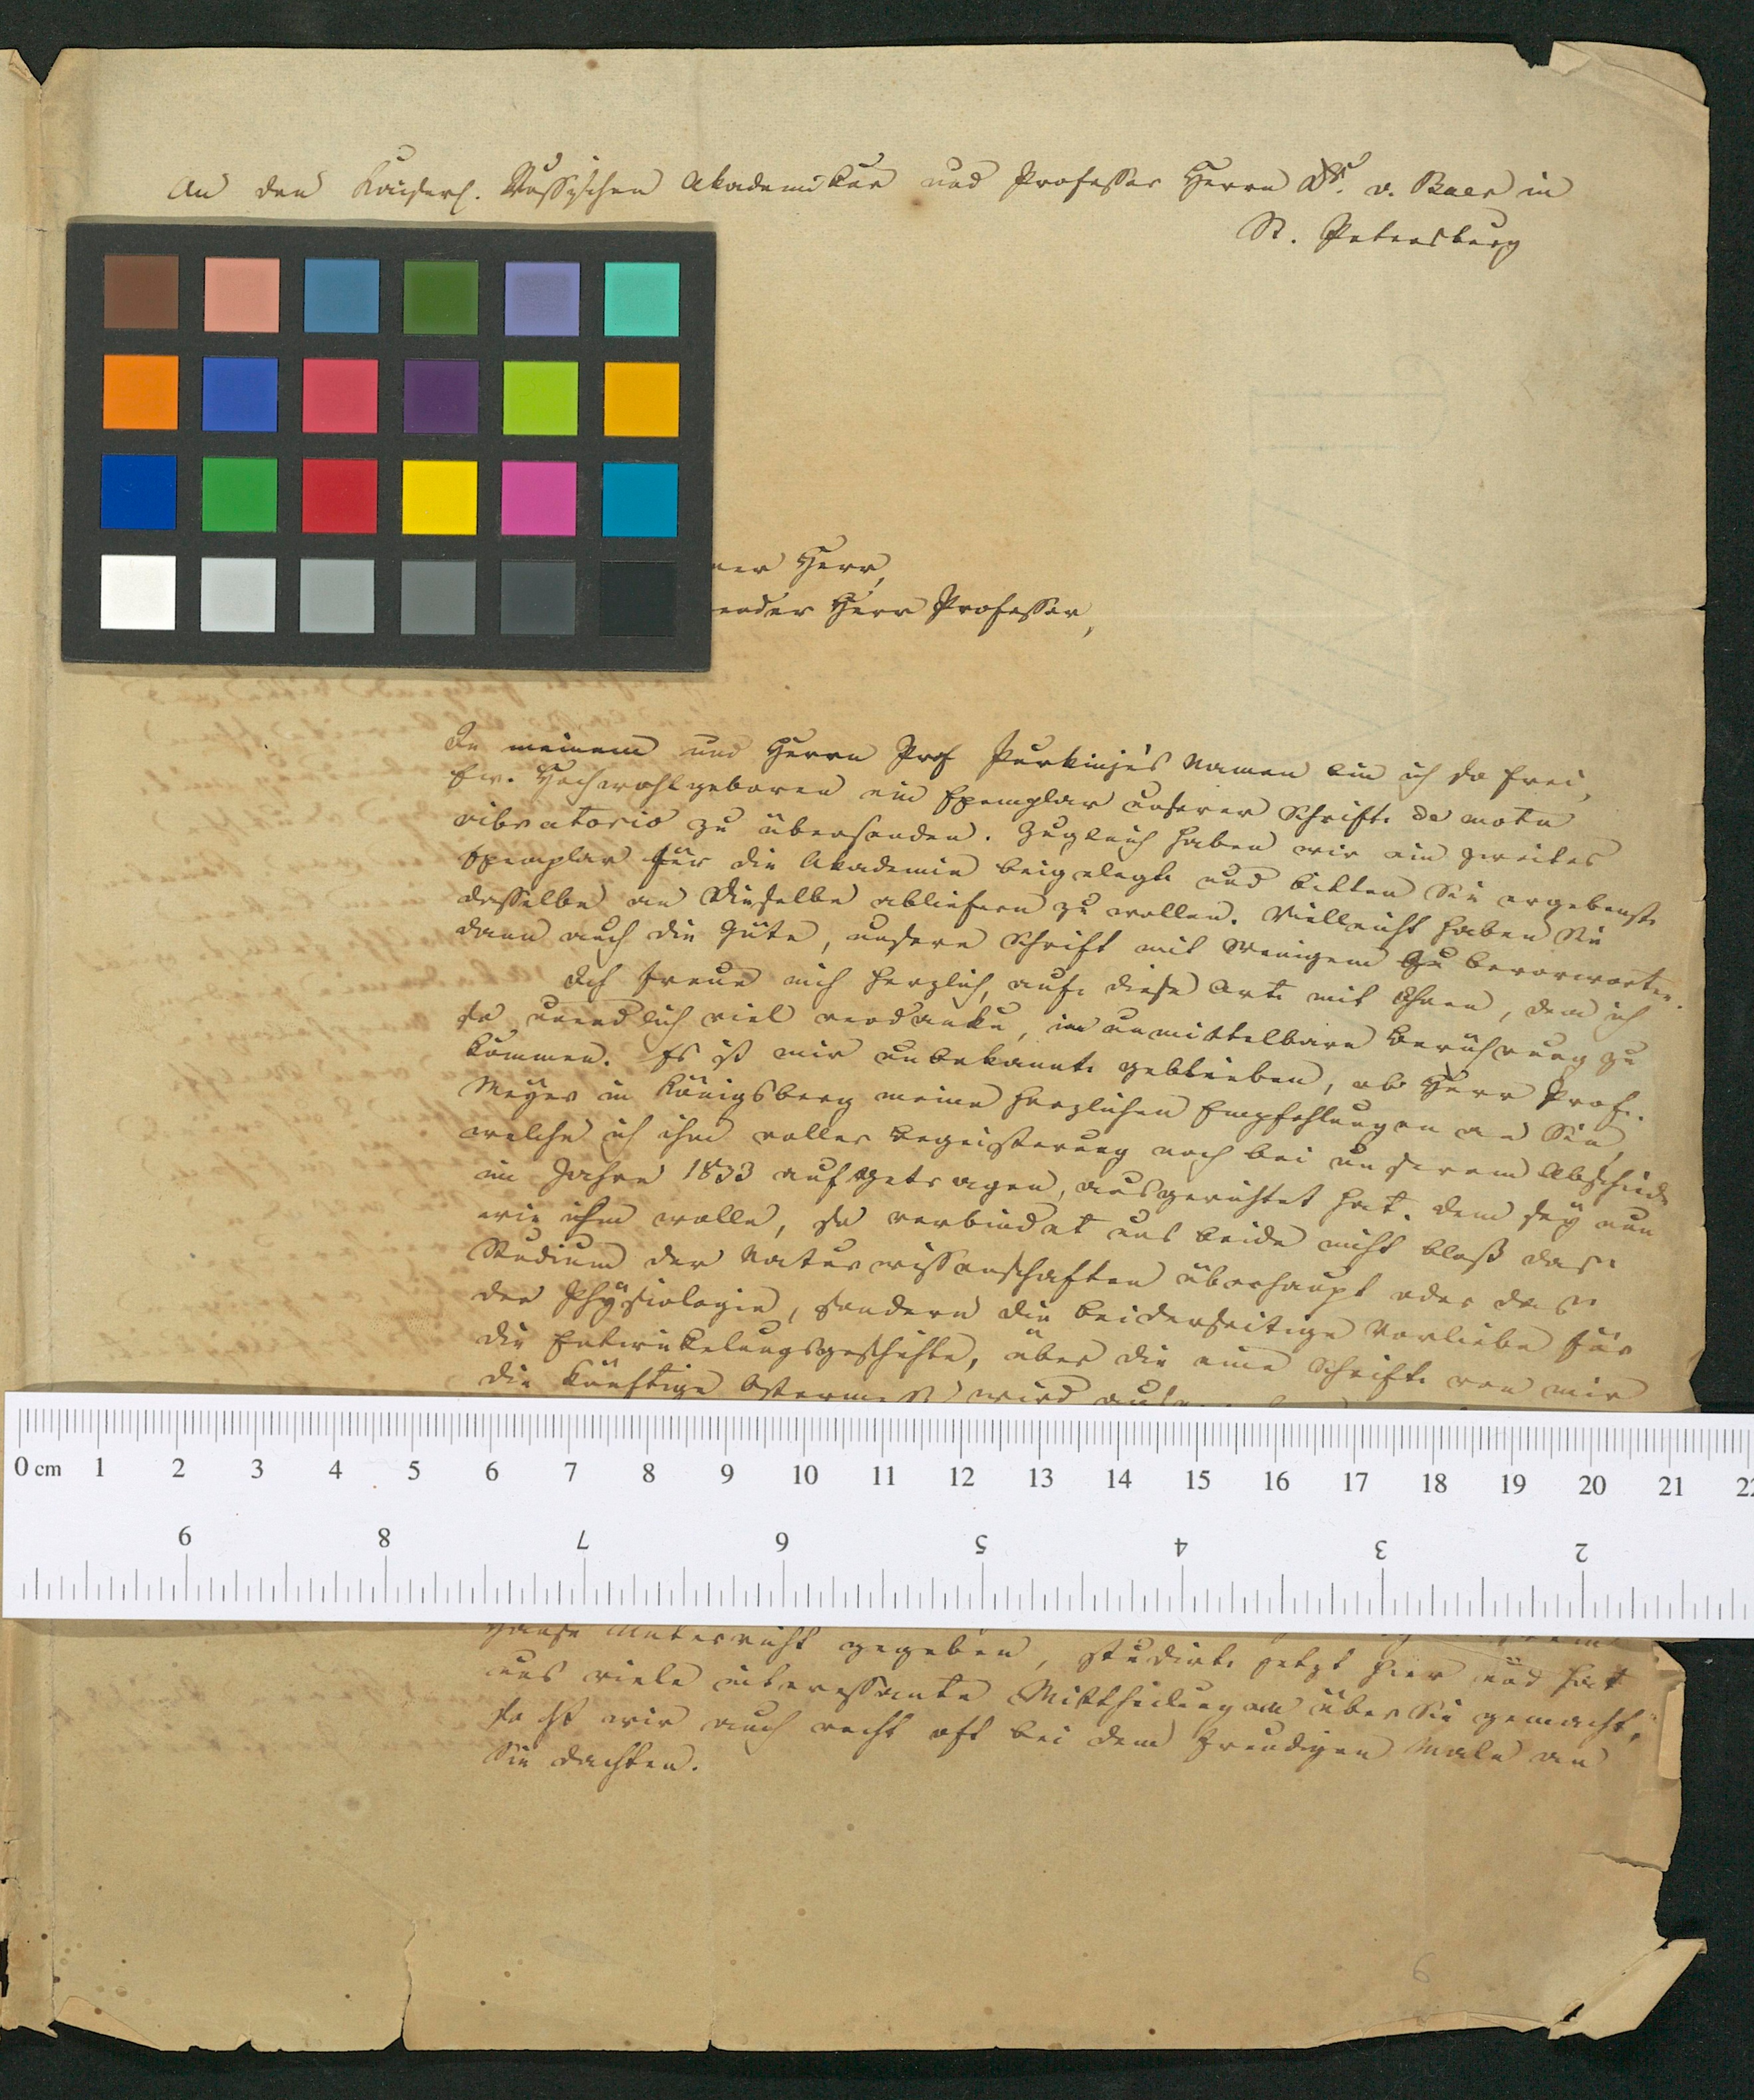 An den Kaiserl. Russischen Akademiker und Professor Herrn Dr. v. Baer in
St. Petersburg
ner Herr,
ender Herr Professor,
In meinem und Herrn Prof Purkinje's Namen bin ich so frei,
Ew. Hochwohlgeboren ein Exemplar unserer Schrift de motu
vibratorio zu übersenden. Zugleich haben wir ein zweites
Exemplar für die Akademie beigelegt und bitten Sie ergebenst
dasselbe an Dieselbe abliefern zu wollen. Vielleicht haben Sie
dann auch die Güte, unsere Schrift mit Wenigem zu bevorworten.
Ich freue mich herzlich, auf diese Art mit Ihnen, dem ich
so unendlich viel verdanke, in unmittelbare Berührung zu
kommen. Es ist mir unbekannt geblieben, ob Herr Prof.
Meyer in Königsberg meine herzlichen Empfehlungen an Sie,
welche ich ihm voller Begeisterung noch bei unserem Abschiede
im Jahre 1833 aufgetragen, ausgerichtet hat. Dem sey nun
wie ihm wolle, so verbindet uns beide nicht bloß das
Studium der Naturwissenschaften überhaupt oder das
der Physiologie, sondern die beiderseitige Vorliebe für
die Entwickelungsgeschichte, über die eine Schrift von mir
die künftige Ostermesse wird
0 cm 1 2 3 4 5 6 7 8 9 10 11 12 13 14 15 16 17 18 19 20 21 22
9 8 7 6 5 4 3 2
Hause Unterricht gegeben, studirt jetzt hier und hat
uns viele interessante Mittheilungen über Sie gemacht,
so daß wir auch recht oft bei dem freudigen Male an
Sie dachten.
6